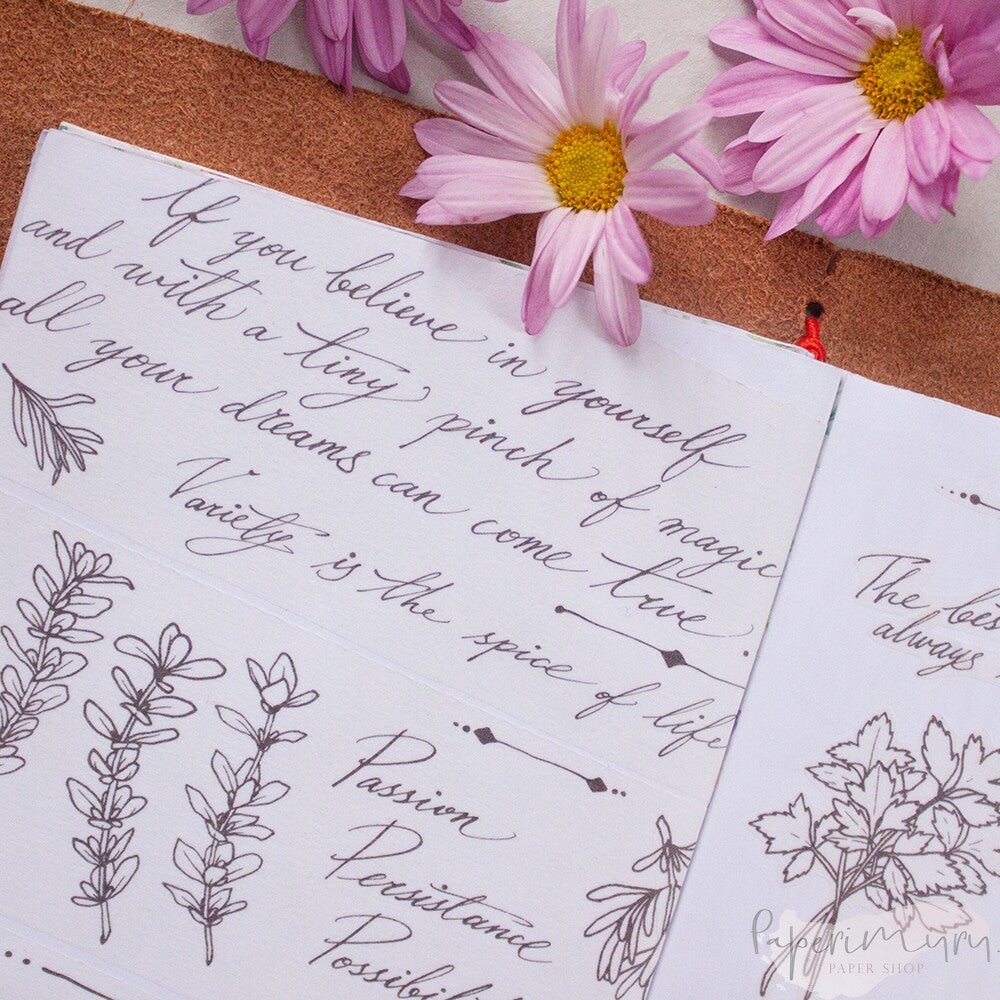 If you believe in yourself
and with a tiny pinch of magic
all your dreams can come true
Variety is the spice of life
Passion
Persistance
The
always
PaperiMyry
PAPER SHOP